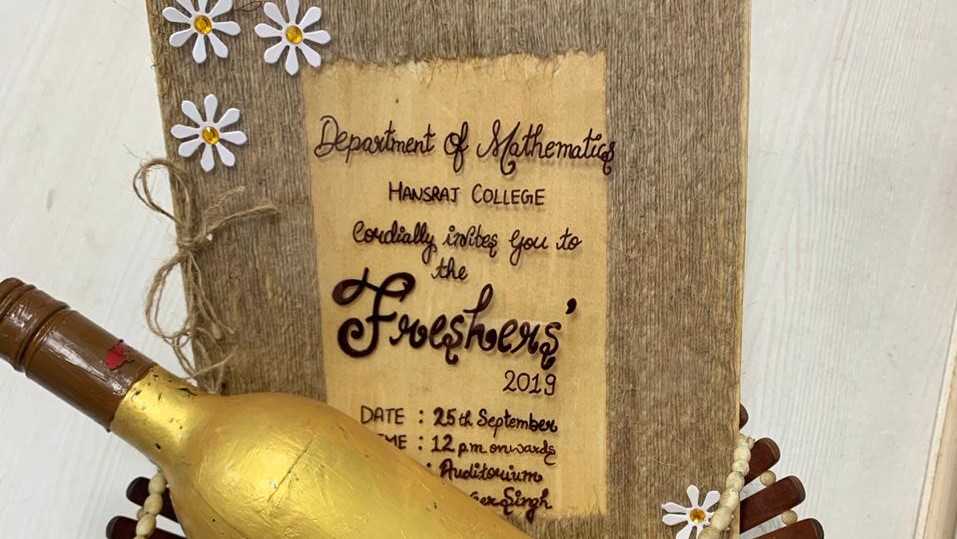 Department of Mathematics
HANSRAJ COLLEGE
Cordially invites you to
the
Freshers'
2019
DATE : 25th September
: 12 p.m. onwards
: Auditorium
Singh